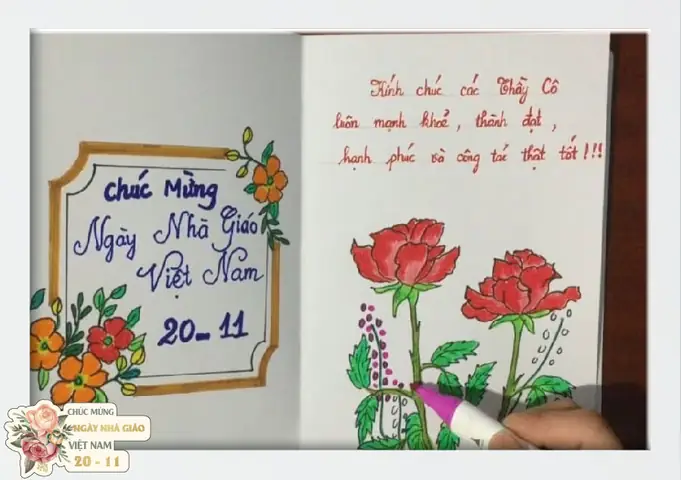 Chúc Mừng
Ngày Nhà Giáo
Việt Nam
20_11
Kính chúc các Thầy Cô
luôn mạnh khoẻ, thành đạt,
hạnh phúc và công tác thật tốt!!!
CHÚC MỪNG
NGÀY NHÀ GIÁO
VIỆT NAM
20 - 11